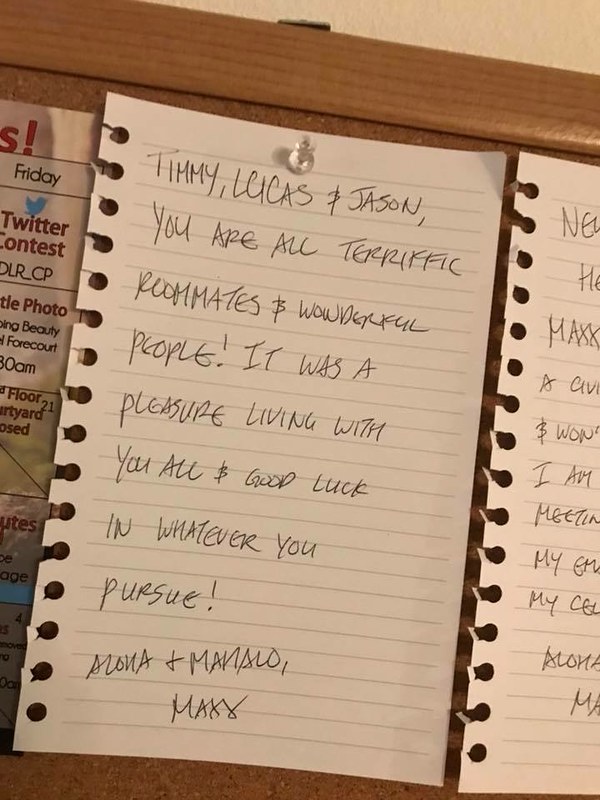 s!
Friday
Twitter
Contest
DLR_CP
tle Photo
ping Beauty
l Forecourt
30am
Floor
21
urtyard
osed
utes
age
4
TIMMY, LUCAS & JASON,
YOU ARE ALL TERRIFFIC
ROOMMATES & WONDERFUL
PEOPLE! IT WAS A
PLEASURE LIVING WITH
YOU ALL & GOOD LUCK
IN WHATEVER YOU
PURSUE!
ALOHA + MAHALO,
MAXX
NEW
HE
MAXX
A CIVI
& WON'
I AM
MEETIN
MY EM
MY CEL
ALOHA
MA